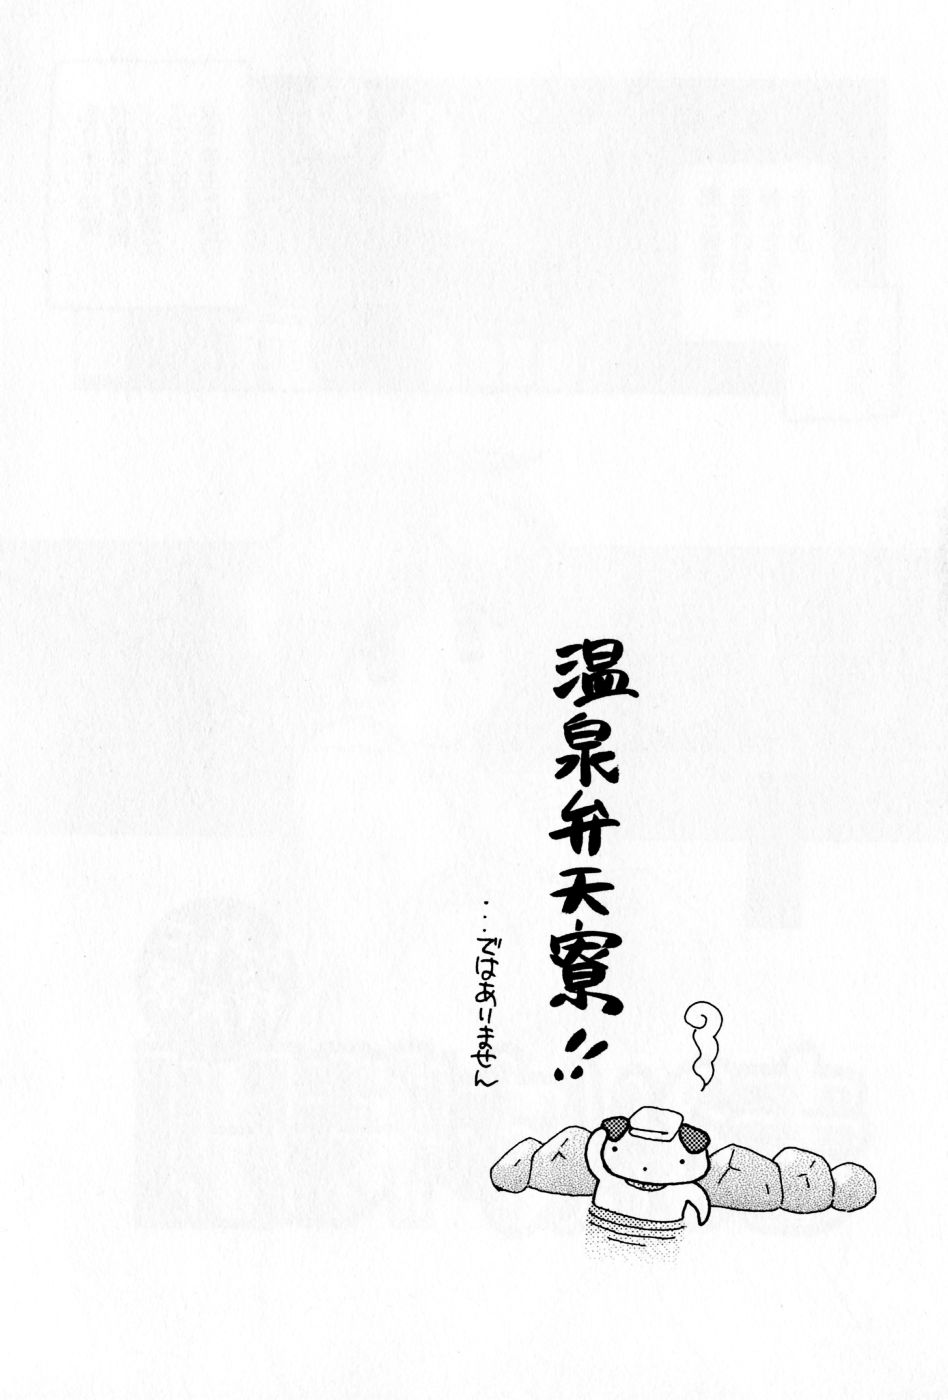 温泉弁天寮!!
…ではありません